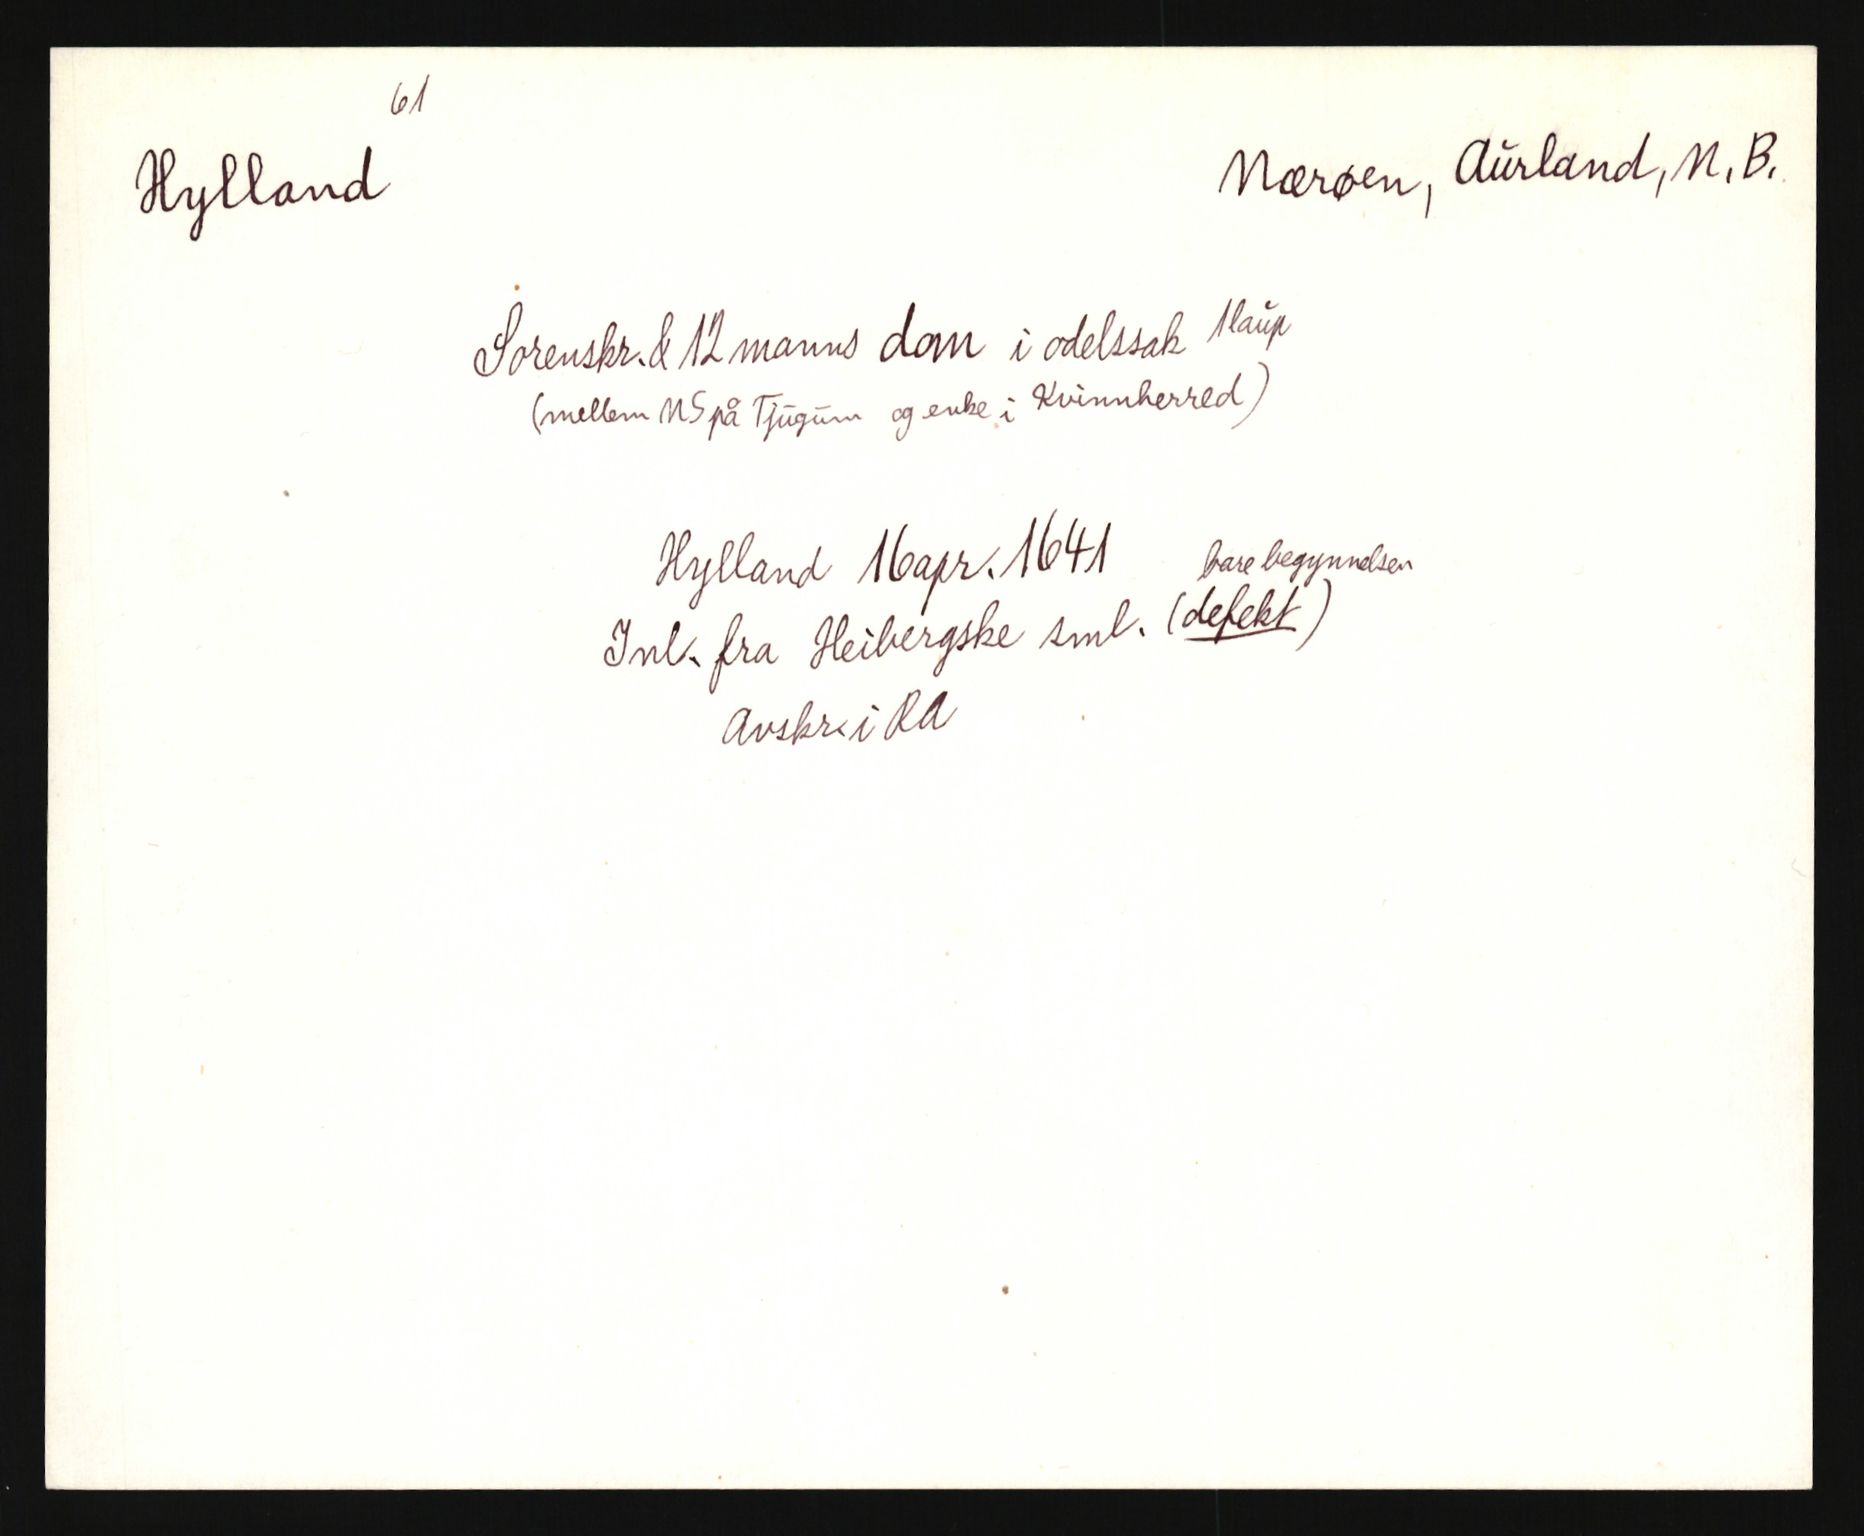 61
Hylland
Nærøen, Aurland, N.B.
Sorenskr. & 12 manns dom i odelssak 1 laup
(mellem NS på Tjugum og enke i Kvinnherred)
Hylland 16 apr. 1641
bare begynnelsen
Inl. fra Heibergske sml. (defekt)
Avskr. i RA